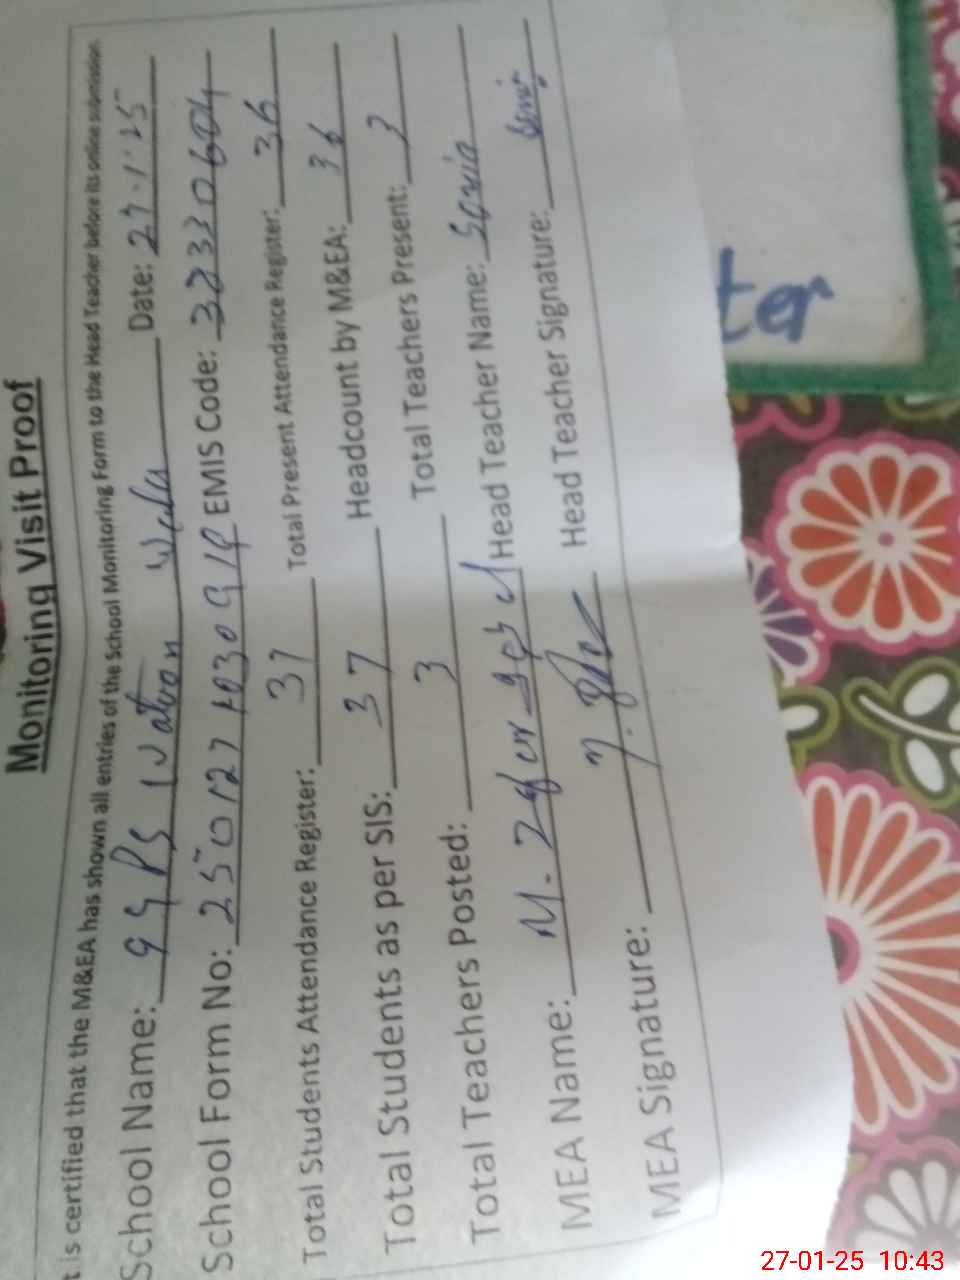 Monitoring Visit Proof
t is certified that the M&EA has shown all entries of the School Monitoring Form to the Head Teacher before its online submission.
School Name: GGPS Watron Wala Date: 27.1.25
School Form No: EMIS Code: 32330604
Total Students Attendance Register: 37 Total Present Attendance Register: 36
Total Students as per SIS: 37 Headcount by M&EA: 36
Total Teachers Posted: 3 Total Teachers Present:
MEA Name: Head Teacher Name: Sonia
MEA Signature: Head Teacher Signature:
ter
27-01-25 10:43